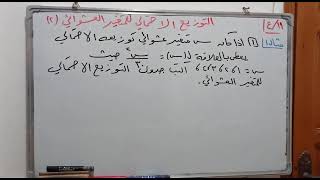 التوزيع الاحتمالي للمتغير العشوائي (٢)
مثال (١) اذا كان س متغير عشوائي توزيعه الاحتمالي
يعطى بالعلاقة د(س) = حيث
س = اكتب جدول التوزيع الاحتمالي
للمتغير العشوائي.